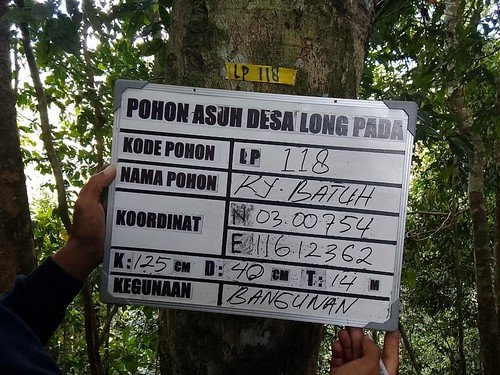 LP 118
POHON ASUH DESA LONG PADA
KODE POHON LP 118
NAMA POHON KY. BATUH
KOORDINAT N 03.00754
E 116.12362
K: 125 CM D: 40 CM T: 14 M
KEGUNAAN BANGUNAN